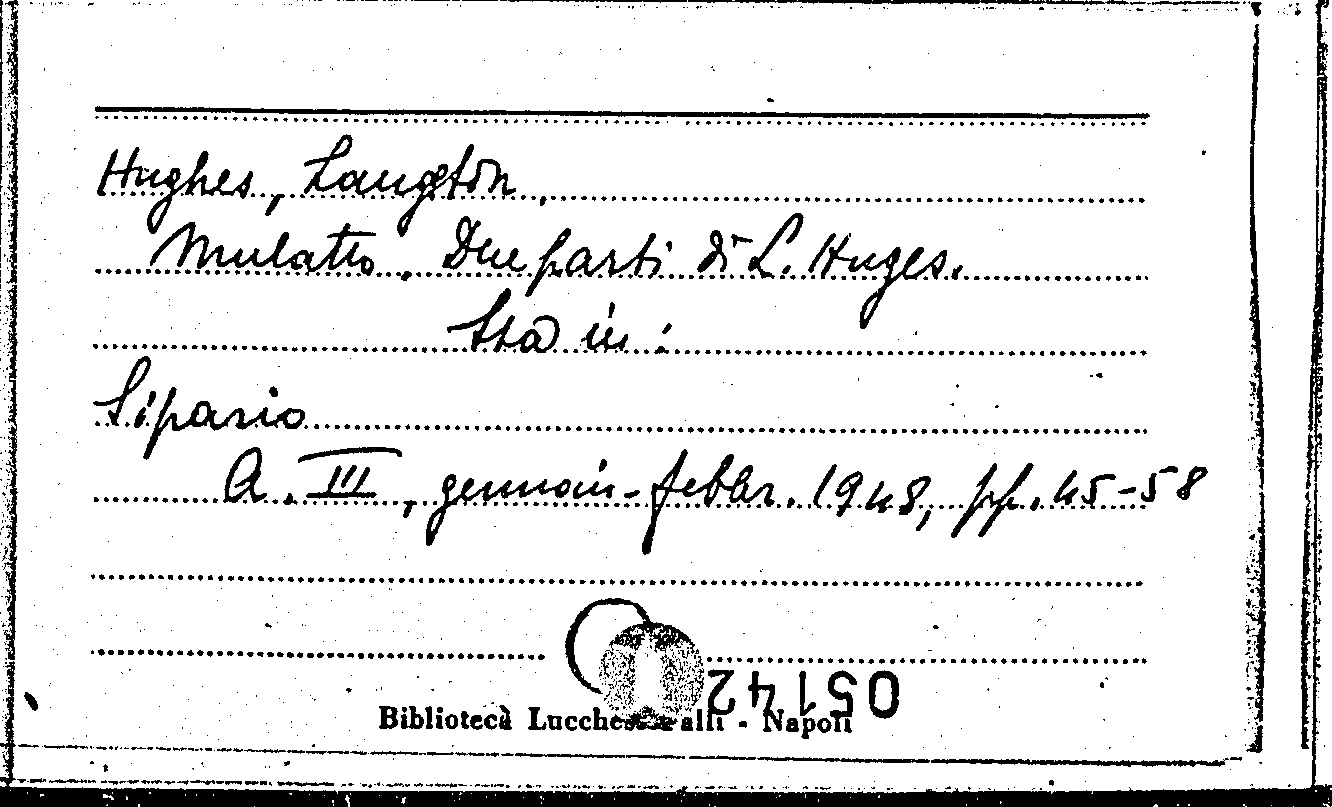 Hughes, Langton,
Mulatto. Due parti di L. Huges.
Sta in:
Sipario
A. III, gennaio-febbr. 1948, pp. 45-58
05142
Biblioteca - Napoli